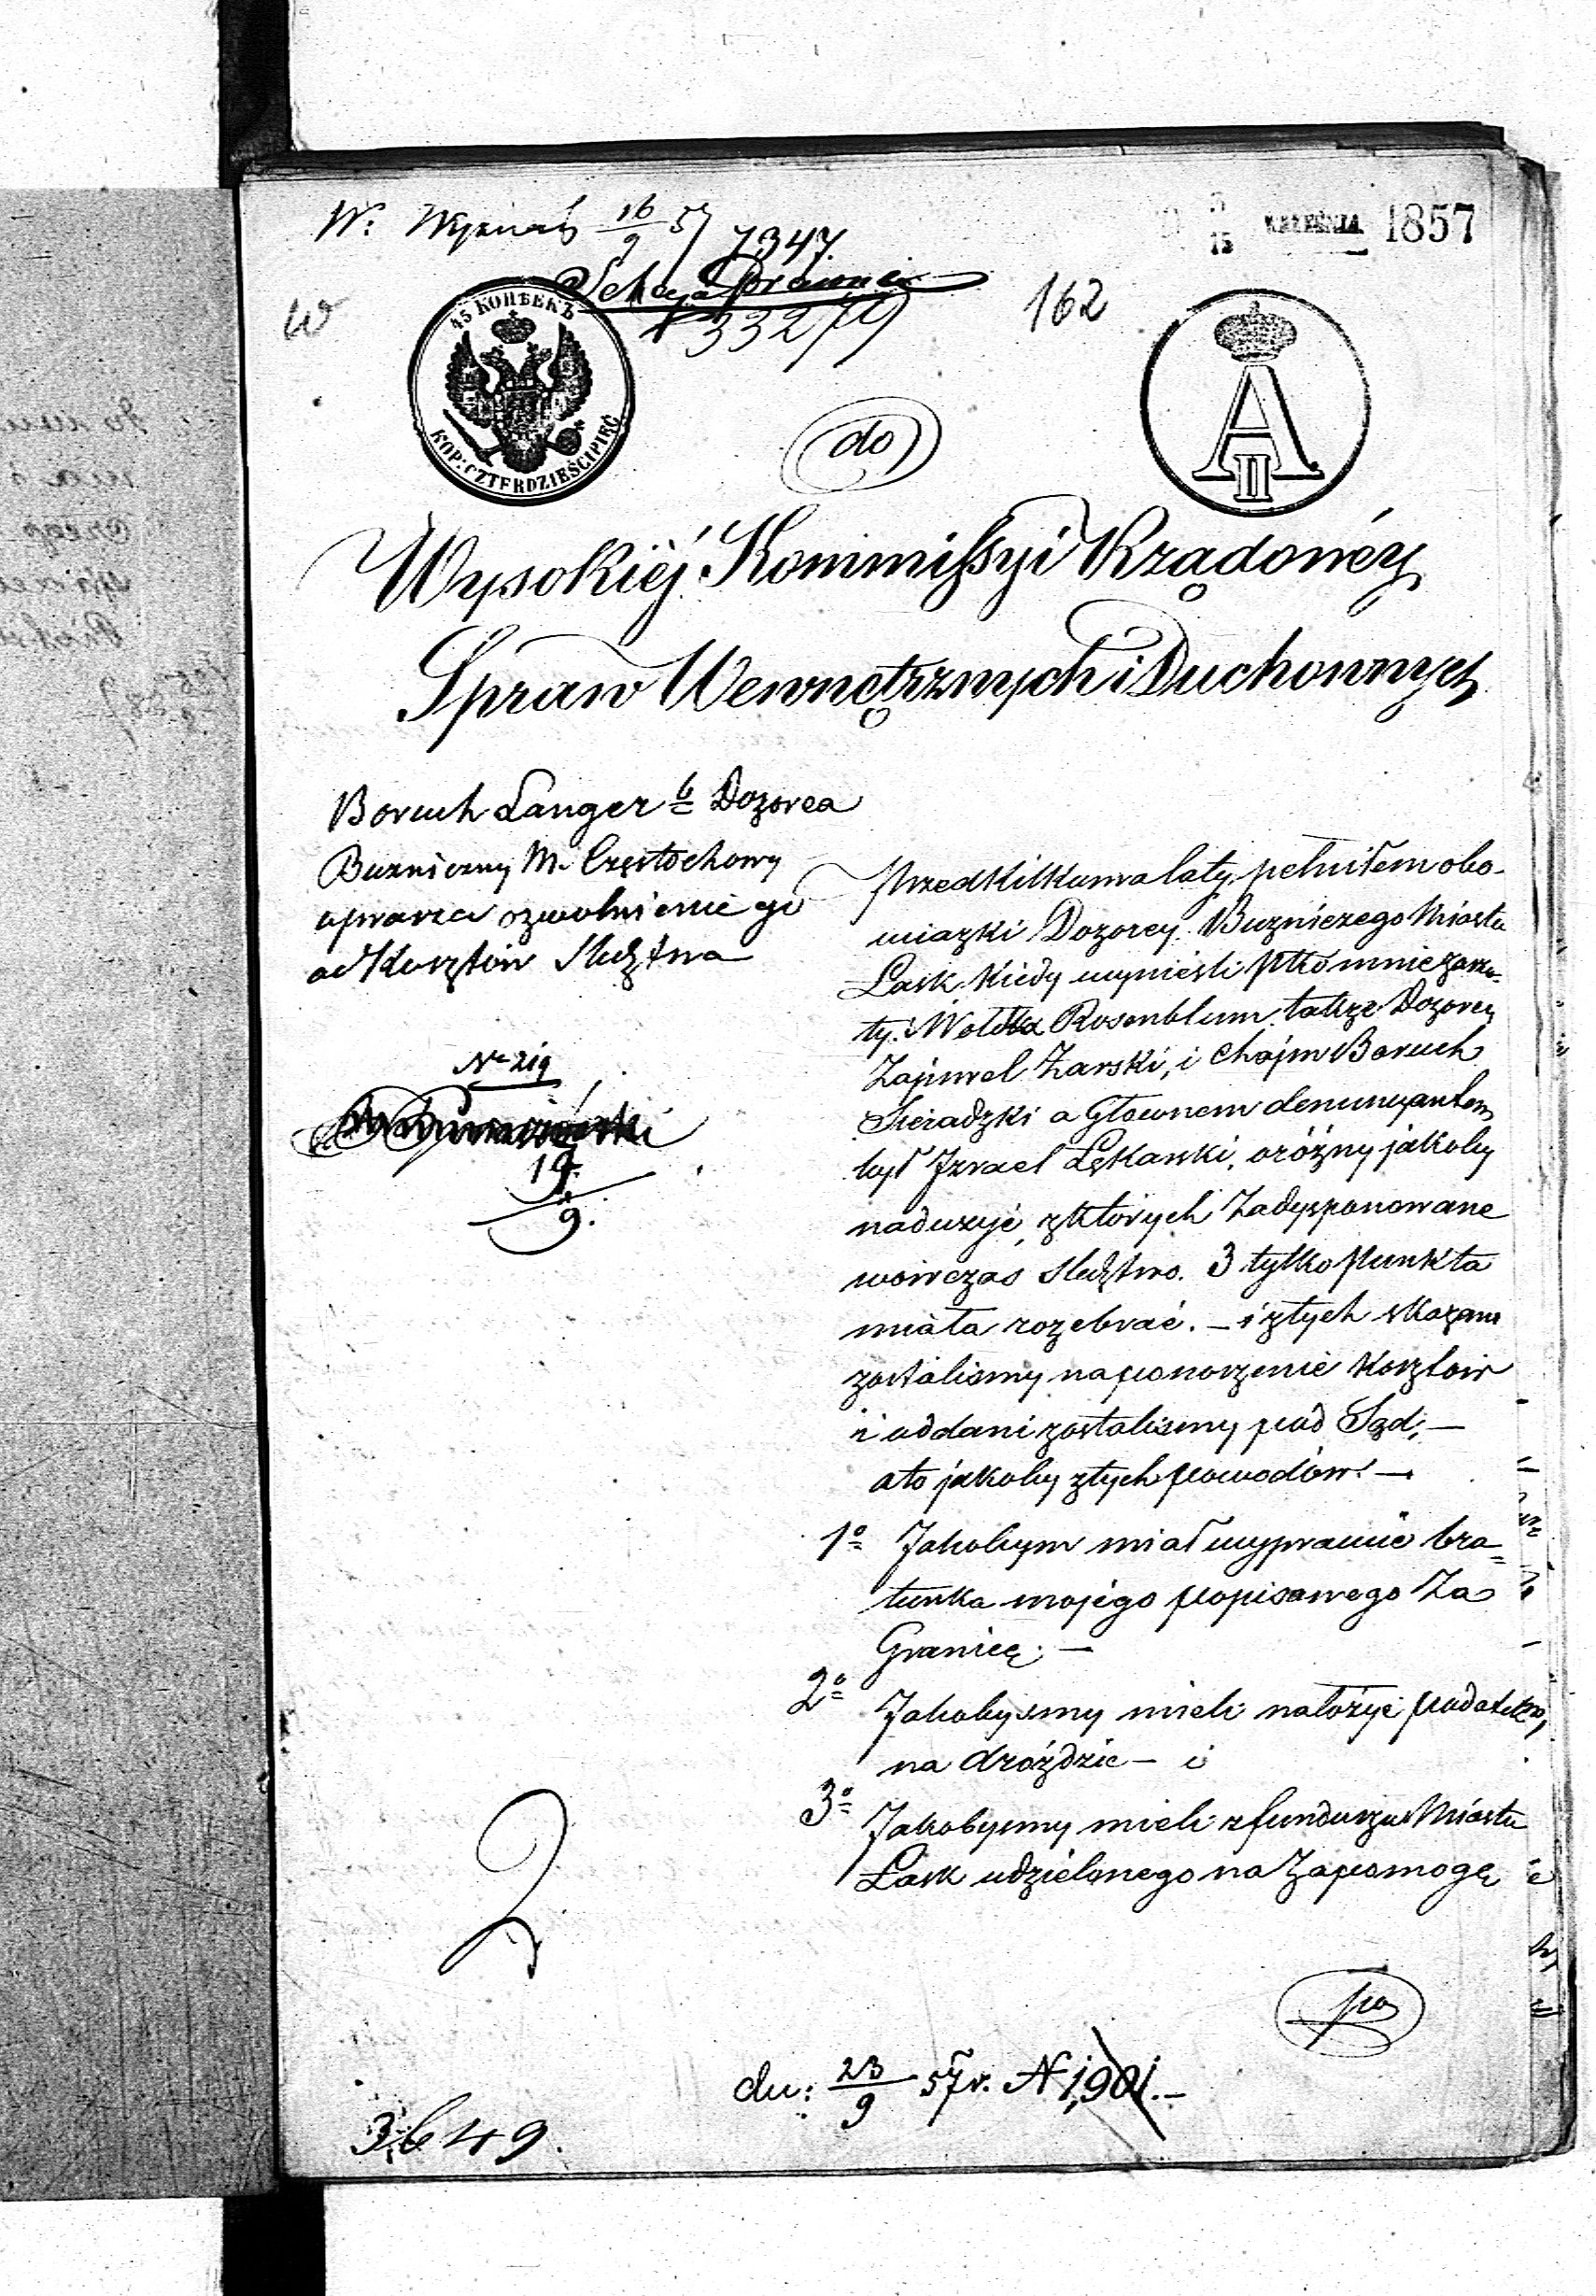 W. 16/9 57
7347.
3/15 WRZEŚNIA 1857
W
45 КОПѢЕКЪ
KOP: CZTERDZIEŚCI PIĘĆ
33277
162
A II
do
Wysokiéj Kommissyi Rządowéy
Spraw Wewnętrznych i Duchownych
Boruch Langer b Dozorca
Buzniczny M. Częstochowy
uprasza o zwolnienie go
od Kosztów Sledztwa
Nr 219
19/9.
Przed Kilkuma laty, pełniłem obo-
wiazki Dozorcy Buzniczego Miasta
Łask Kiedy wynieśli Ptko mnie zarzu-
ty. Rosenblum także Dozorcy
Zajnwel Zarski, i Chaim Boruch
Sieradzki a Głownem denuncyantem
był Jzrael Łękawski, o różny jakoby
naduzyć, z Których Zadysponowane
wówczas Sledztwo. 3 tylko Punkta
miała rozebrać. – i z tych skazani
zostaliśmy na ponoszenie Kosztów
i oddani zostaliśmy pod Sąd, –
a to jakoby z tych powodów. –
1o Jakobym miał wyprawić bra-
tunka mojego popisowego Za
Granicę. –
2o Jakobysmy mieli nałożyć podatek
na drożdzie – i
3o Jakobysmy mieli z funduszu Miasta
Łask udzielonego na Zapomogę
po
2
du: 23/9 57 r. N 1,901. –
3649.